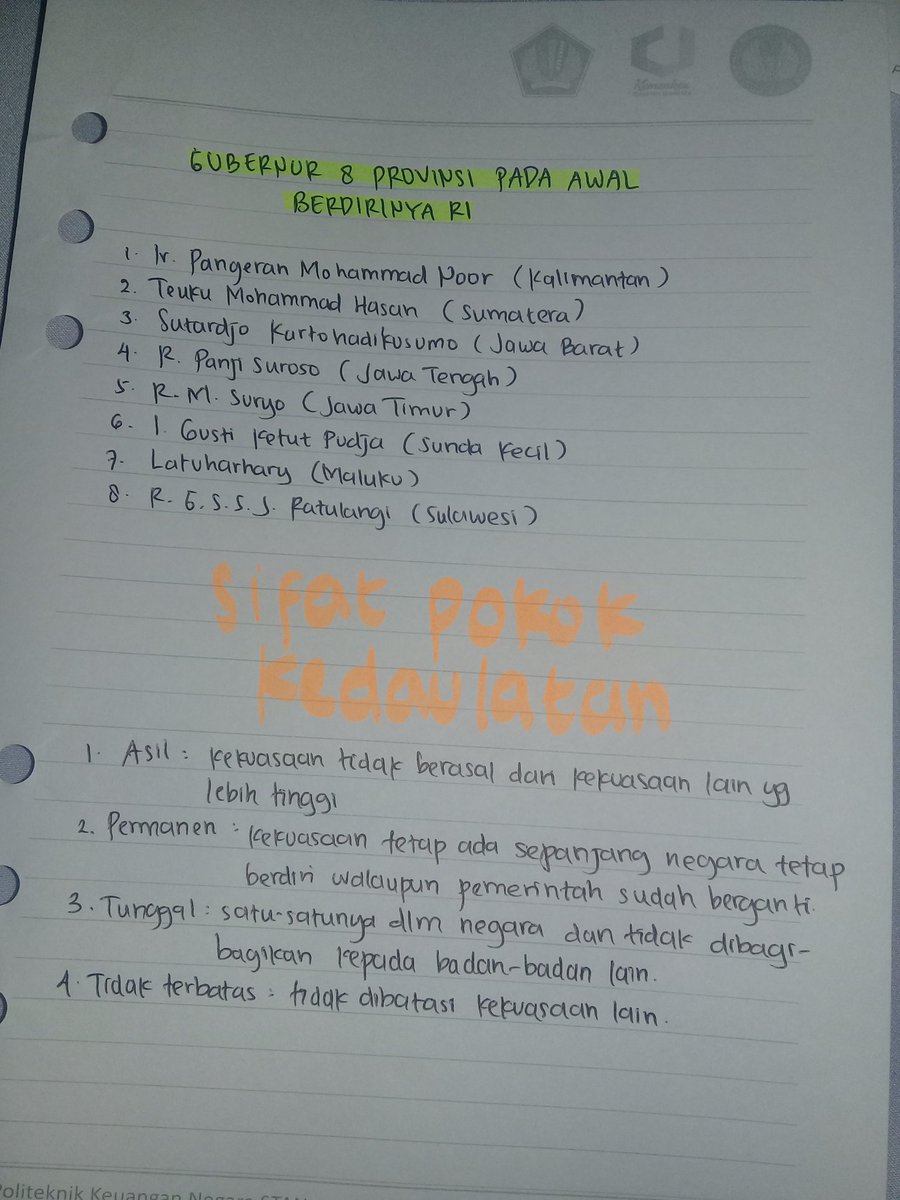 GUBERNUR 8 PROVINSI PADA AWAL
BERDIRINYA RI
1. Ir. Pangeran Mohammad Noor (Kalimantan)
2. Teuku Mohammad Hasan (Sumatera)
3. Sutardjo Kartohadikusumo (Jawa Barat)
4. R. Panji Suroso (Jawa Tengah)
5. R. M. Suryo (Jawa Timur)
6. I. Gusti Ketut Pudja (Sunda Kecil)
7. Latuharhary (Maluku)
8. R. G. S. S. J. Ratulangi (Sulawesi)
Sifat pokok
kedaulatan
1. Asil : kekuasaan tidak berasal dari kekuasaan lain yg
lebih tinggi
2. Permanen : kekuasaan tetap ada sepanjang negara tetap
berdiri walaupun pemerintah sudah berganti.
3. Tunggal : satu-satunya dlm negara dan tidak dibagi-
bagikan kepada badan-badan lain.
4. Tidak terbatas : tidak dibatasi kekuasaan lain.
Politeknik Keuangan Negara STAN